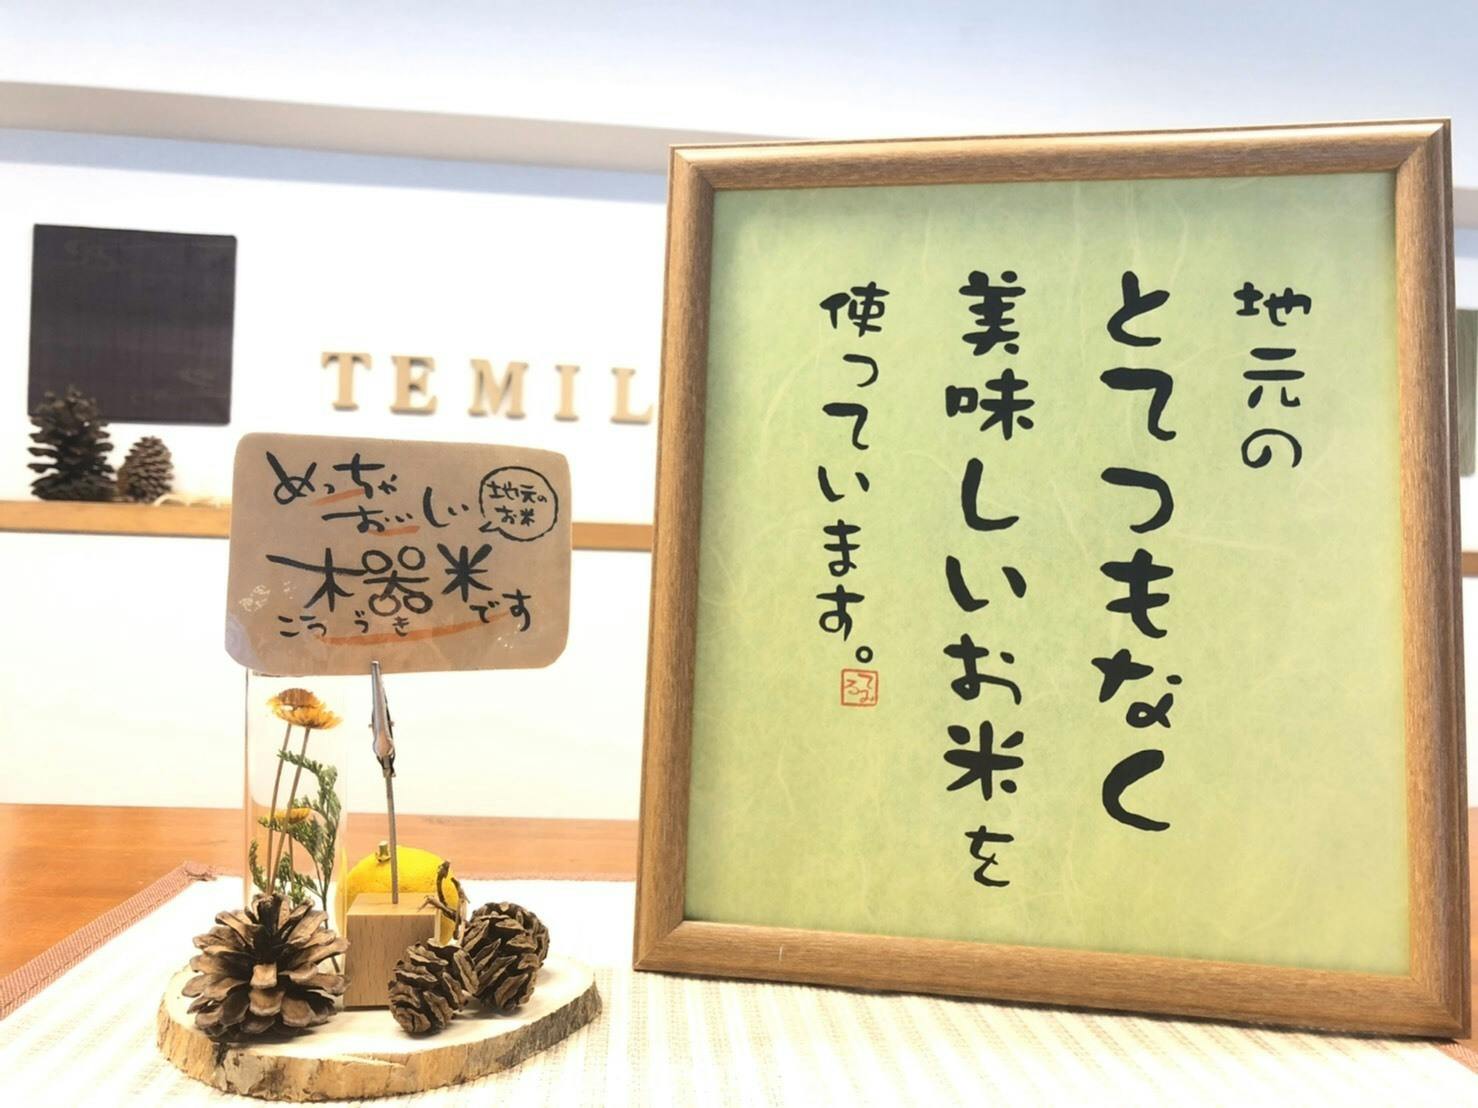 地元の
とてつもなく
美味しいお米を
使っています。
てるみ
めっちゃ
おいしい
地元の
お米
木器米
こうづき
です
TEMIL